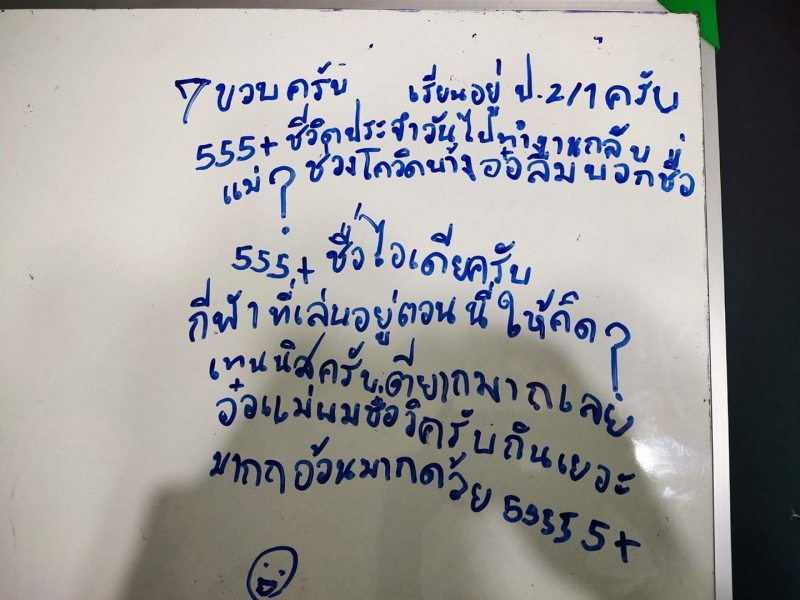 7 ขวบครับ เรียนอยู่ ป.2/1 ครับ
555+ ชีวิตประจำวันไปทำงานกลับ
แม่? ช่วงโควิดบ้างอ๋อลืมบอกชื่อ
555+ ชื่อไอเดียครับ
กีฬาที่เล่นอยู่ตอนนี้ให้คิด?
เทนนิสครับตียากมากเลย
อ๋อแม่ผมชื่อวิครับกินเยอะ
มากกอ้วนมากด้วย 55555+